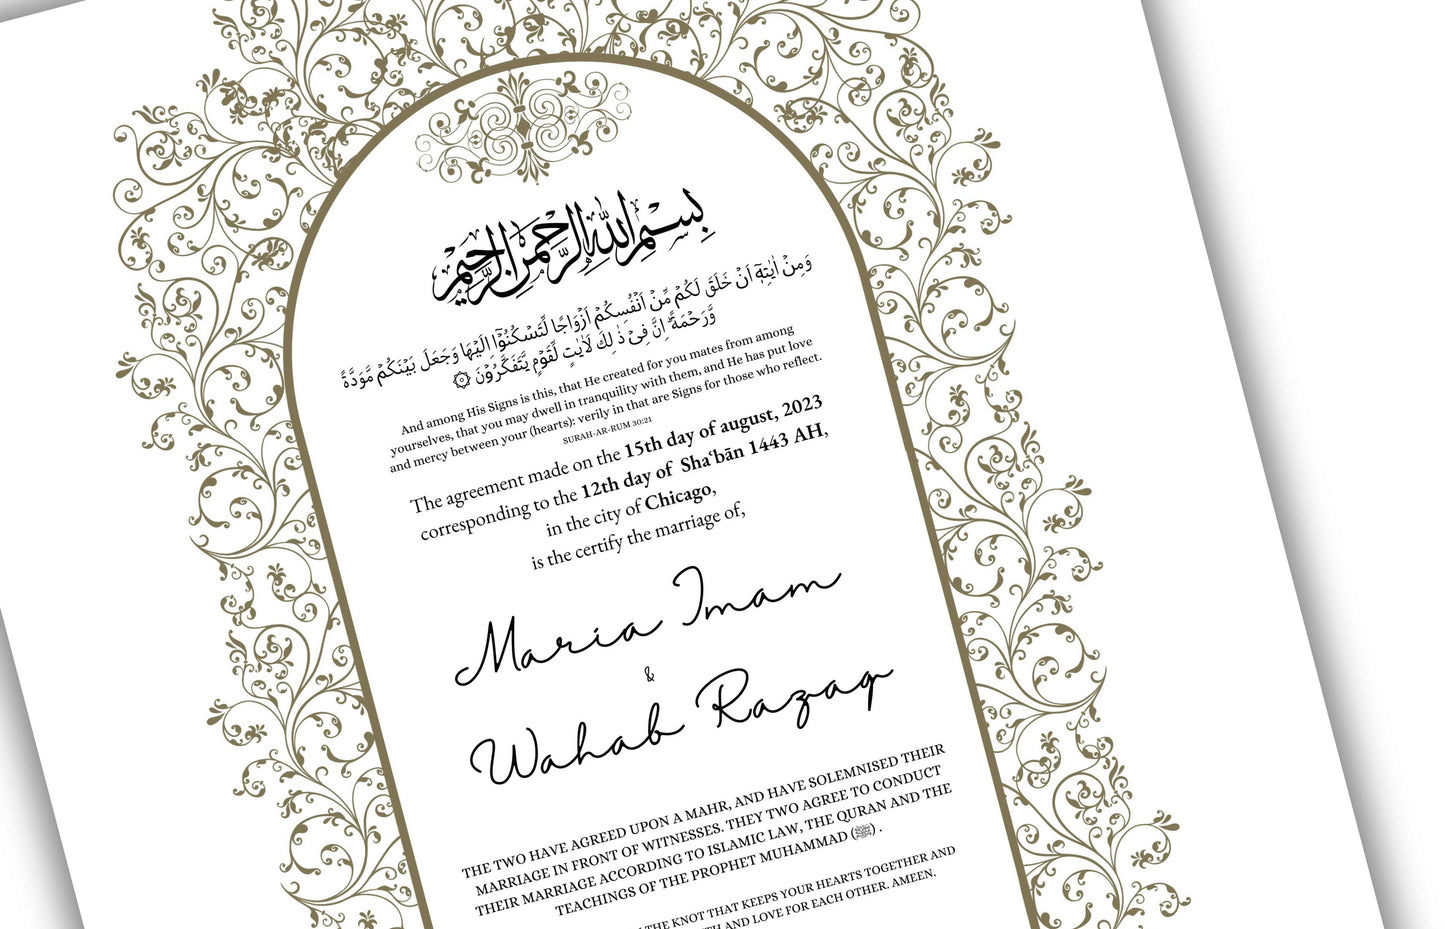 بِسْمِ اللهِ الرَّحْمٰنِ الرَّحِيْمِ
وَمِنْ اٰيٰتِهٖٓ اَنْ خَلَقَ لَكُمْ مِّنْ اَنْفُسِكُمْ اَزْوَاجًا لِّتَسْكُنُوْٓا اِلَيْهَا وَجَعَلَ بَيْنَكُمْ مَّوَدَّةً
وَّرَحْمَةً ۗ اِنَّ فِيْ ذٰ لِكَ لَاٰيٰتٍ لِّقَوْمٍ يَّتَفَكَّرُوْنَ ۞
And among His Signs is this, that He created for you mates from among
yourselves, that you may dwell in tranquility with them, and He has put love
and mercy between your (hearts): verily in that are Signs for those who reflect.
SURAH-AR-RUM 30:21
The agreement made on the 15th day of august, 2023
corresponding to the 12th day of Shaʿbān 1443 AH,
in the city of Chicago,
is the certify the marriage of,
Maria Imam
&
Wahab Razaq
THE TWO HAVE AGREED UPON A MAHR, AND HAVE SOLEMNISED THEIR
MARRIAGE IN FRONT OF WITNESSES. THEY TWO AGREE TO CONDUCT
THEIR MARRIAGE ACCORDING TO ISLAMIC LAW, THE QURAN AND THE
TEACHINGS OF THE PROPHET MUHAMMAD (ﷺ) .
THE KNOT THAT KEEPS YOUR HEARTS TOGETHER AND
AND LOVE FOR EACH OTHER. AMEEN.